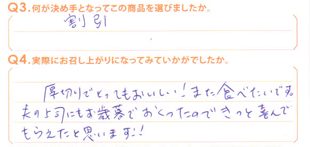 Q3.何が決め手となってこの商品を選びましたか。
割引
Q4.実際にお召し上がりになってみていかがでしたか。
厚切りでとってもおいしい!また食べたいです。
夫の上司にもお歳暮でおくったのできっと喜んで
もらえたと思います!!